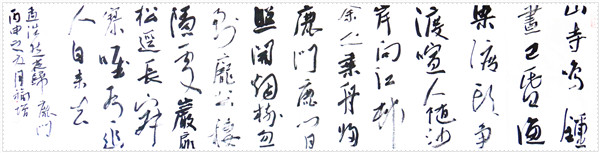 山寺鳴鐘
晝已昏漁
梁渡頭爭
渡喧人隨沙
岸向江村
余亦乘舟歸
鹿門鹿門月
照開烟樹忽
到龐公棲
隱處巖扉
松逕長寂
寥唯有幽
人自來去
孟浩然夜歸鹿門
丙申之九月